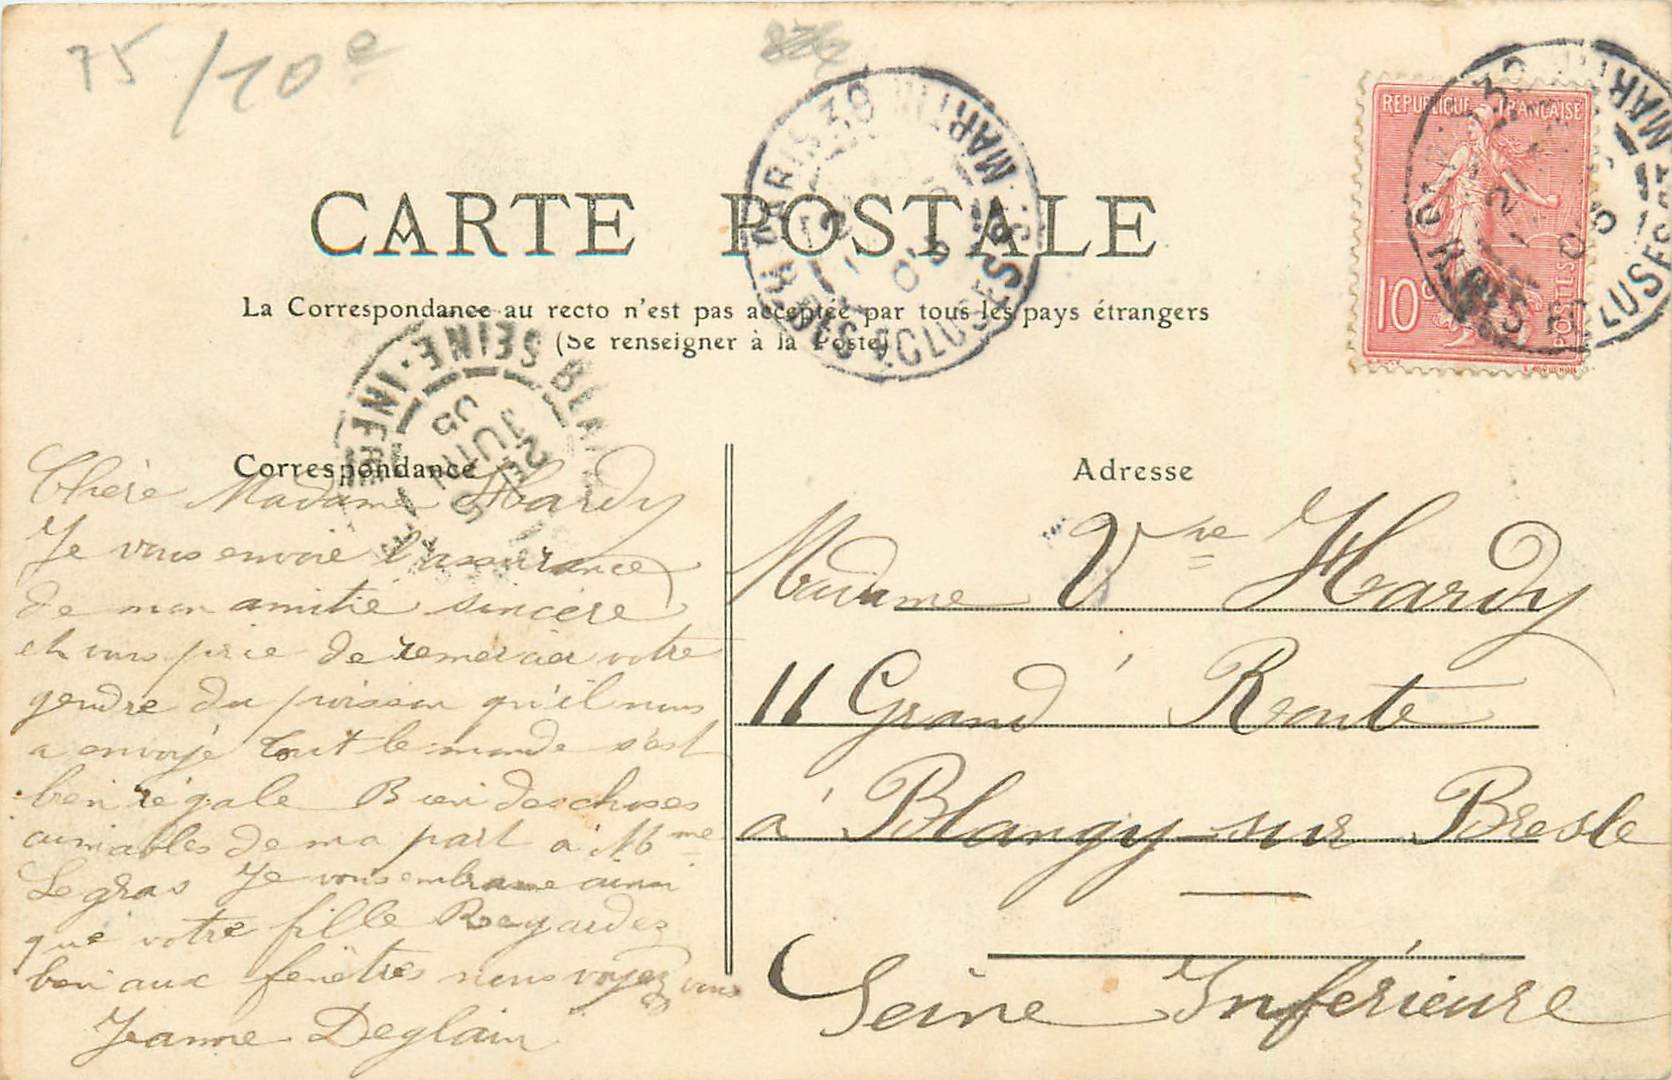 75/10e
CARTE POSTALE
La Correspondance au recto n'est pas acceptée par tous les pays étrangers
(Se renseigner à la Poste)
REPUBLIQUE FRANÇAISE
10c
POSTES
PARIS 39
R. DES ECLUSES St MARTIN
05
PARIS 39
R. DES ECLUSES St MARTIN
05
SEINE-INFRE
2E
JUIN
05
Correspondance
Chère Madame Hardy
Je vous envoie l'assurance
de mon amitié sincère
et vous prie de remercier votre
gendre du poisson qu'il nous
a envoyé tout le monde s'est
bien régale Bien des choses
aimables de ma part à Mme
Legras Je vous embrasse ainsi
que votre fille Regardez
bien aux fenêtres nous voyez vous
Jeanne Deglain
Adresse
Madame Vve Hardy
11 Grand' Route
à Blangy-sur Bresle
Seine Inférieure